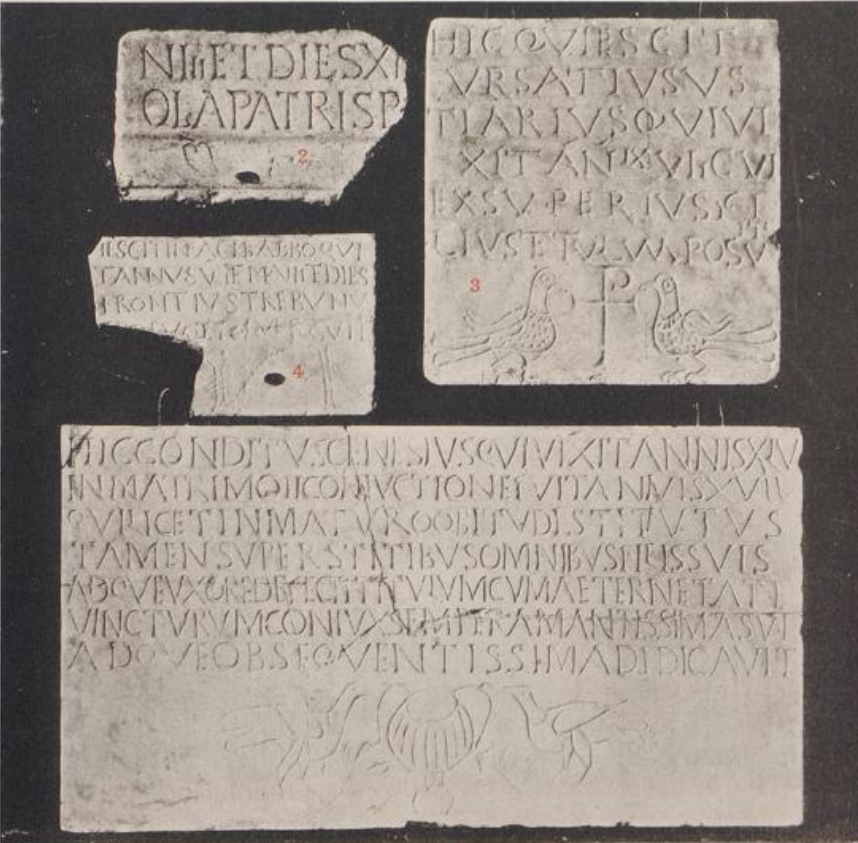 NIIII ET DIES XI
OLA PATRIS P
2
HIC QVIESCIT
VRSATIVS VS
TIARIVS QVI VI
XIT AN LXVII CVI
EXSVPERIVS
LIVS TETVLVM POSV
3
IESCIT IN PACE
TANNVS V ET M VIII ET DIES
FRONTIVS TREBVNV
4
HIC CONDITVS CENESIVS QVI VIXIT ANNIS
IN MATRIMONII CONIVCTIONE FVIT ANNVIS XVIII
QVI LICET INMATVRO OBITV DISTITVTVS
TAMEN SVPERSTITIBVS OMNIBVS FILIIS SVIS
ADQVE VXORE DEFECIT TITVLVM CVM AETERNETATE
VINCTVRVM CONIVX SEMPER AMANTISSIMA SVI
ADQVE OBSEQVENTISSIMA DIDICAVIT